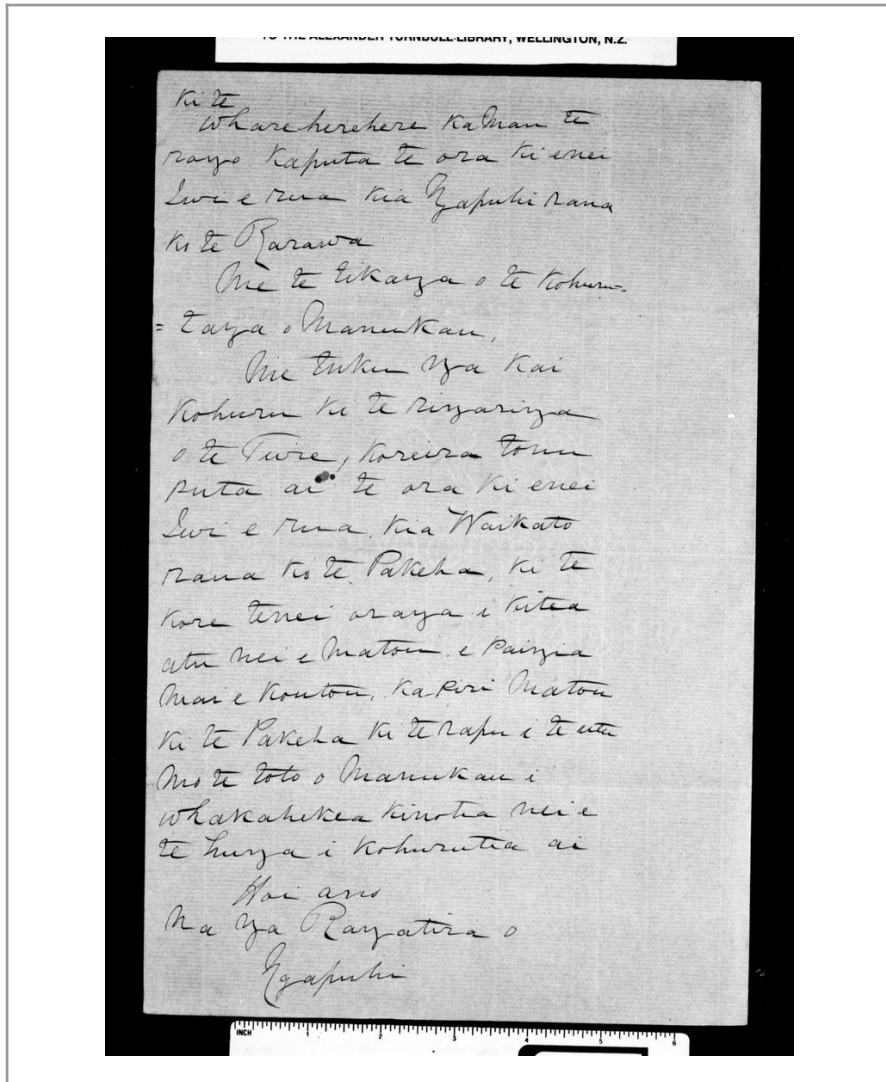 TO THE ALEXANDER TURNBULL LIBRARY, WELLINGTON, N.Z.
ki te
whareherehere ka Mau te
rongo kaputa te ora ki enei
Iwi e rua kia Ngapuhi rana
ko te Rarawa
Me te tikanga o te Kohuru-
= tanga o Manukau,
Me tuku nga Kai
Kohuru ki te ringaringa
o te Ture, koreira tonu
puta ai te ora ki enei
Iwi e rua, kia Waikato
rana ko te Pakeha, ki te
kore tenei oranga i kitea
atu nei e Matou e paingia
Mai e koutou, ka piri Matou
ki te Pakeha ki te rapu i te utu
Mo te toto o Manukau i
whakahekea kinotia nei e
te hunga i kohurutia ai
Hoi ano
Na nga Rangatira o
Ngapuhi
INCH 1 2 3 4 5 6